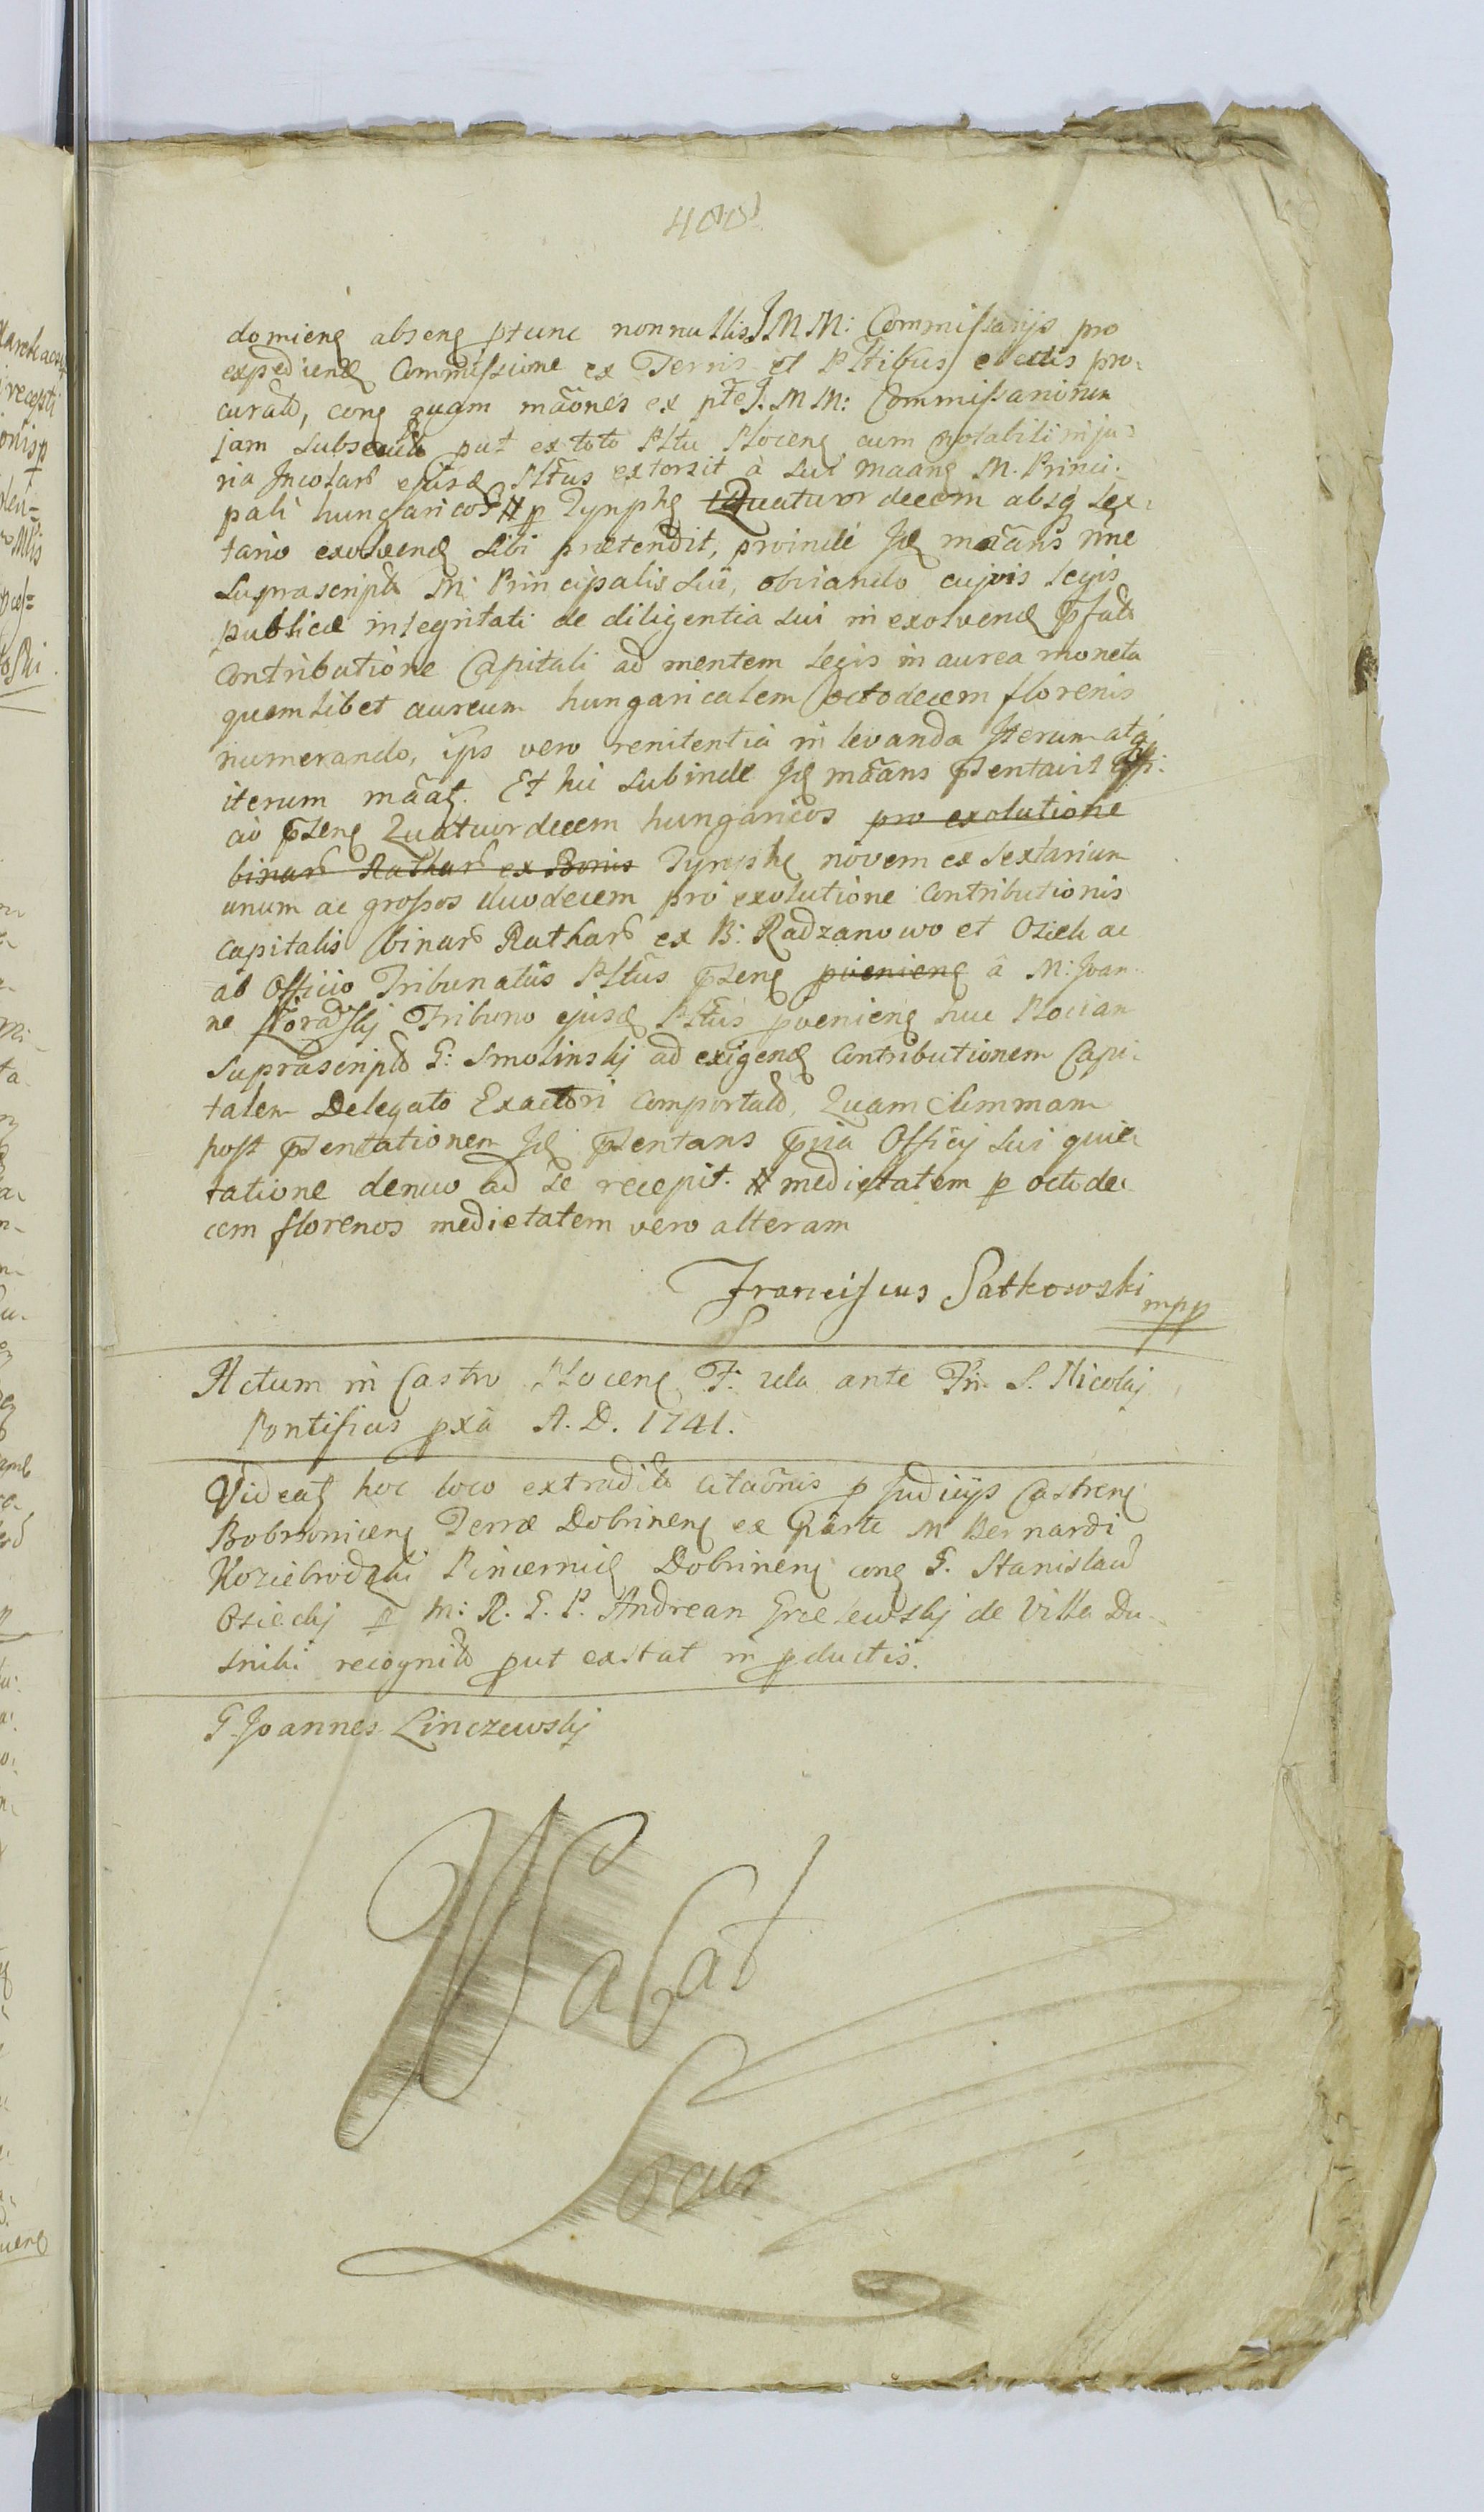 400
domieng abseng ptunc nonnullis J. M M: Commissarijs pro
expediend Commissione ex Terris et Pltibus electis pro-
curato, cong quam mãones ex pte J. M M: Commissariorum
jam subsecuto put ex toto Pltu Ploceng cum notabili inju-
ria Incolarum ejusd Pltus extorsit à sui maang M. Princi-
pali hungaricos # p Tymphg Quatuordecem absq sex-
tario exolvend sibi prætendit, proinde Jd mãans nne
suprascripti M: Principalis sui, obviando cujvis legis
publicæ integritati de diligentia sui in exolvend pfata
Contributione Capitali ad mentem legis in aurea moneta
quemlibet aureum hungaricalem octodecem florenis
numerando, ips vero renitentia in levanda Iterum atq
iterum mãat. Et hic subinde Jd mãans pntavit Offi-
cio pnteng Quatuordecem hungaricos pro exolutione
binarum Ratharum ex Bonis Tymphg novem et sextarium
unum ac grossos duodecem pro exolutione Contributionis
capitalis binarum Ratharum ex B: Radzanowo et Osiek ac
ab Officio Tribunatûs Pltus pnteng pvenieng â M: Joan-
ne Tribuno ejusd Pltus pvenieng huc Plociam
suprascripto G: Smolinskj ad exigend Contributionem Capi-
talem Delegato Exactori Comportato, Quam summam
post pntationem Jd pntans pvia Officij sui quie-
tatione denuo ad se recepit. # medietatem p octode-
cem florenos medietatem vero alteram
Franciscus Patkowski mpp
Actum in Castro Ploceng F. 2da ante Fm S. Nicolaj
Pontificis pxa A. D. 1741.
Videat hoc loco extradita citaõnis p Judicijs Castreng
Bobrowniceng Terræ Dobrineng ex parte M Bernardi
Koziebrodzki Pincernid Dobrineng cong G. Stanislaum
Osieckj p M: R. G. P. Andream de Villa Du-
sniki recognita put exstat in pductis.
G. Joannes Linczewskj
Vacat
Locus